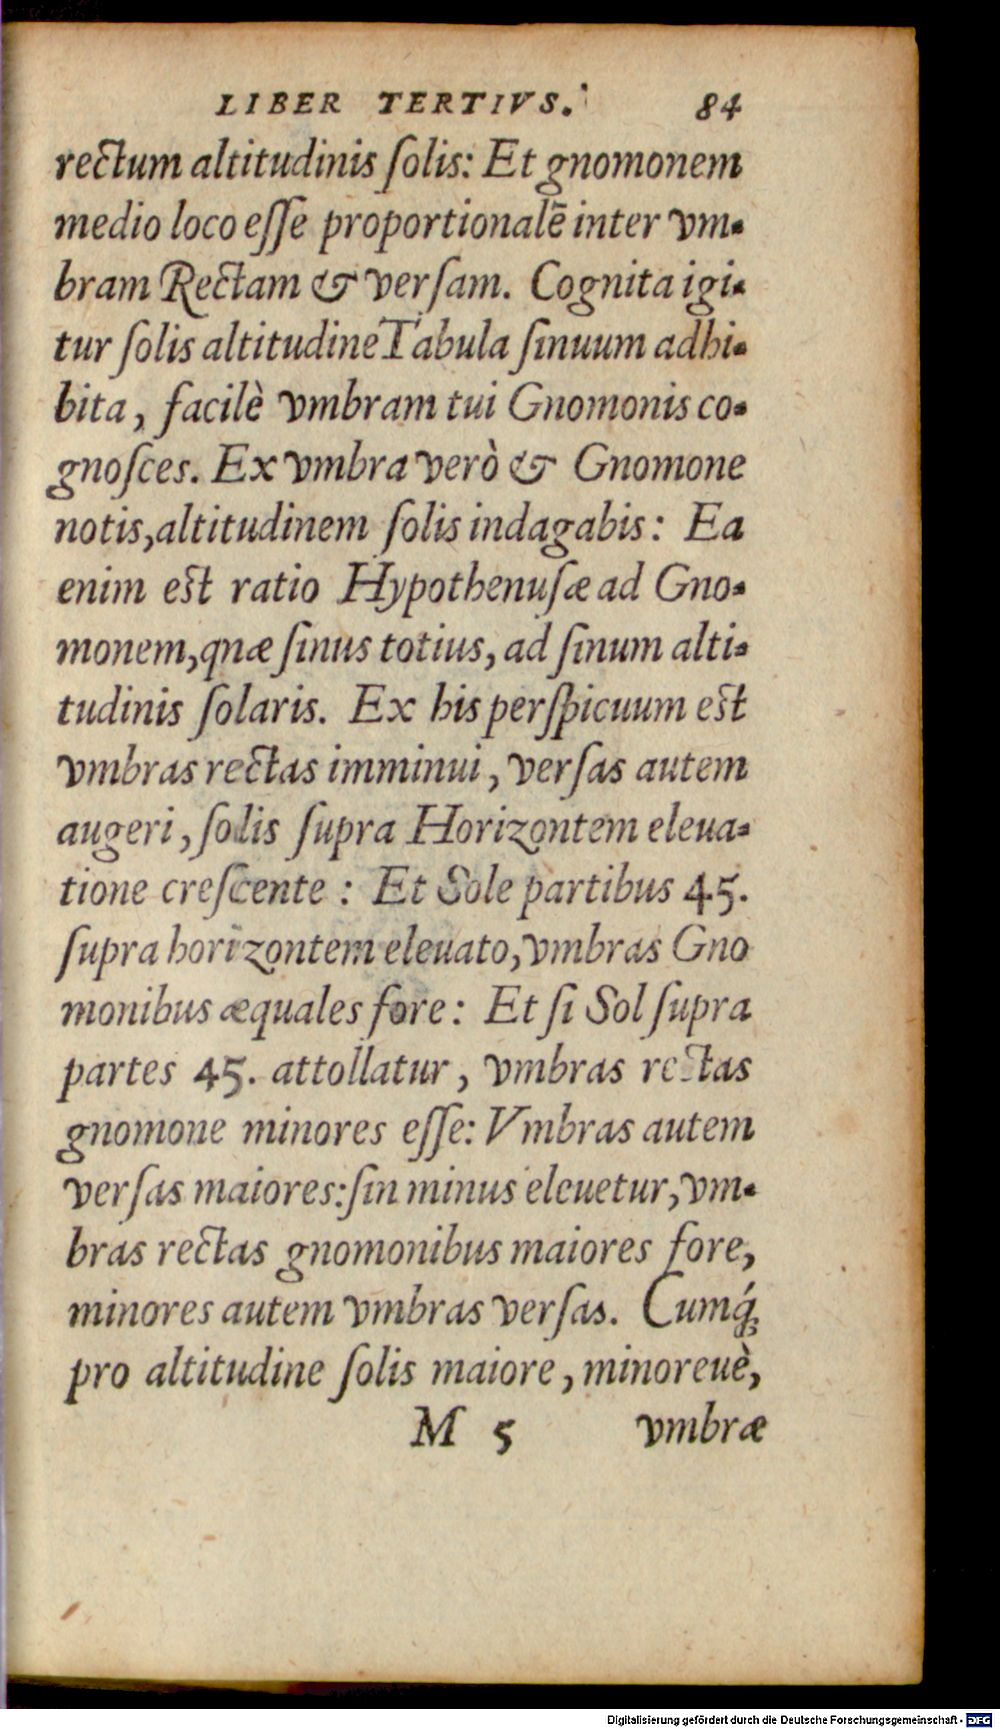 LIBER TERTIVS. 84
rectum altitudinis ſolis: Et gnomonem
medio loco eſſe proportionalē inter vm-
bram Rectam & verſam. Cognita igi-
tur ſolis altitudine Tabula ſinuum adhi-
bita, facilè vmbram tui Gnomonis co-
gnoſces. Ex vmbra verò & Gnomone
notis, altitudinem ſolis indagabis: Ea
enim eſt ratio Hypothenuſæ ad Gno-
monem, qnæ ſinus totius, ad ſinum alti-
tudinis ſolaris. Ex his perſpicuum eſt
vmbras rectas imminui, verſas autem
augeri, ſolis ſupra Horizontem eleua-
tione creſcente: Et Sole partibus 45.
ſupra horizontem eleuato, vmbras Gno
monibus æquales fore: Et ſi Sol ſupra
partes 45. attollatur, vmbras rectas
gnomone minores eſſe: Vmbras autem
verſas maiores: ſin minus eleuetur, vm-
bras rectas gnomonibus maiores fore,
minores autem vmbras verſas. Cumq́ꝫ
pro altitudine ſolis maiore, minoreuè,
M 5 vmbræ
Digitalisierung gefördert durch die Deutsche Forschungsgemeinschaft - DFG